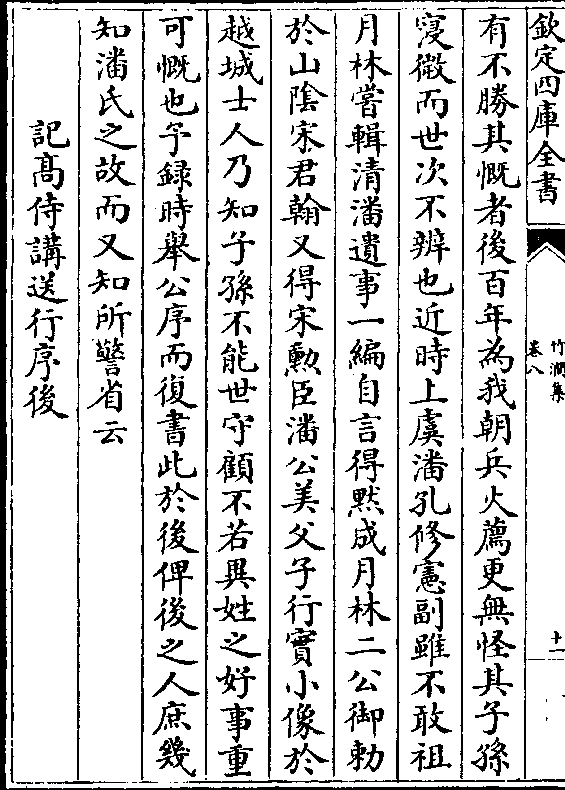 欽定四庫全書
竹澗集
卷八
十二
有不勝其慨者後百年為我朝兵火薦更無怪其子孫
寖微而世次不辨也近時上虞潘孔修憲副雖不敢祖
月林嘗輯清潘遺事一編自言得黙成月林二公御勅
於山陰宋君翰又得宋勲臣潘公美父子行實小像於
越城士人乃知子孫不能世守顧不若異姓之好事重
可慨也予録時舉公序而復書此於後俾後之人庶幾
知潘氏之故而又知所警省云
記髙侍講送行序後